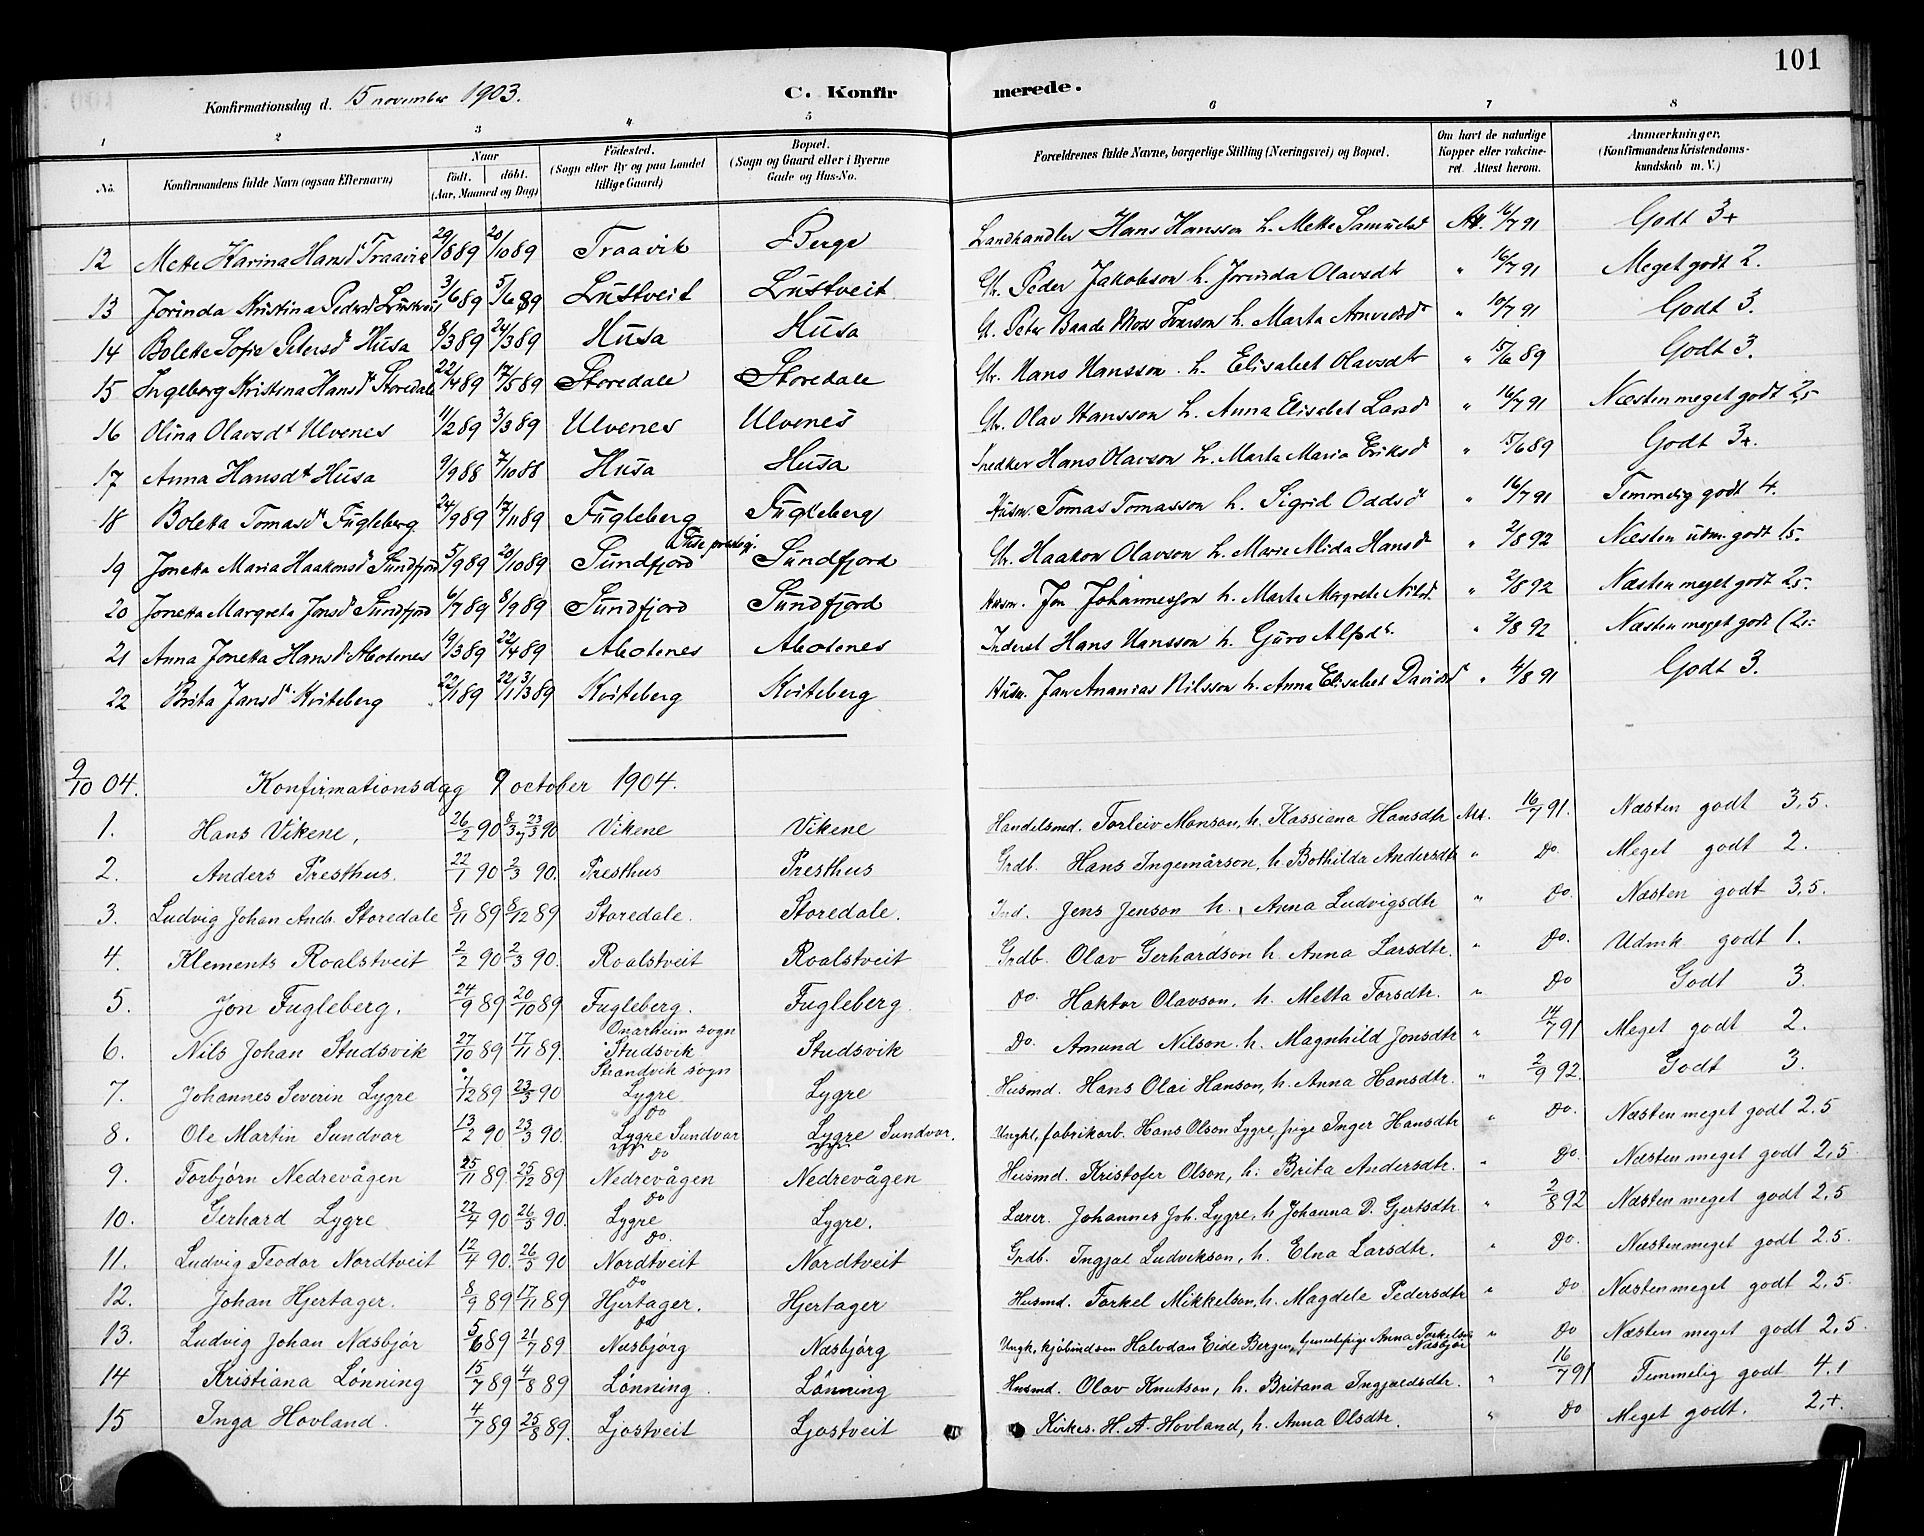 101
Konfirmationsdag d. 15 november 1903. C. Konfirmerede.
1 2 3 4 5 6 7 8
No. Konfirmandens fulde Navn (ogsaa Efternavn) Naar født. døbt. (Aar, Maaned og Dag) Födested. (Sogn eller By og paa Landet tillige Gaard) Bopæl. (Sogn og Gaard eller i Byerne Gade og Hus-No. Forældrenes fulde Navne, borgerlige Stilling (Næringsvei) og Bopæl. Om havt de naturlige Kopper eller vakcineret. Attest herom. Anmærkninger. (Konfirmandens Kristendomskundskab m. V.)
12 Mette Karina Hansd Traavik 29/8 89 20/10 89 Traavik Berge Landhandler Hans Hansson h. Mette Samuelsd Att. 16/7 91 Godt 3+
13 Jorinda Kristina Pedersd Lustveit 3/6 89 5/6 89 Lustveit Lustveit Gr. Peder Jakobson h. Jorinda Olavsdt " 16/7 91 Meget godt 2.
14 Bolette Sofie Petersd Husa 8/3 89 24/3 89 Husa Husa G. Peter Baade Moss Iverson h. Marta Arnvedsd " 10/7 91 Godt 3.
15 Ingeborg Kristina Hansd Storedale 22/4 89 17/5 89 Storedale Storedale Gr. Hans Hansson h. Elisabet Olavsdt " 15/6 89 Godt 3.
16 Olina Olavsdt Ulvenes 11/2 89 3/3 89 Ulvenes Ulvenes Gr. Olav Hansson h. Anna Elisabet Larsd " 16/7 91 Næsten meget godt 2,-
17 Anna Hansdt Husa 9/9 88 7/10 88 Husa Husa Snedker Hans Olavson h. Marta Maria Eriksd " 15/6 89 Godt 3+.
18 Boletta Tomasd Fugleberg 24/9 89 17/11 89 Fugleberg Fugleberg Husm. Tomas Tomasson h. Sigrid Oddsd " 16/7 91 Temmelig godt 4.
19 Jonetta Maria Haakonsd Sundfjord 5/9 89 20/10 89 Sundfjord Sundfjord Gr. Haakon Olavson h. Marie Alida Hansd " 2/8 92 Næsten udm. godt 1,5-
20 Jonetta Margreta Jonsd Sundfjord 6/7 89 8/9 89 Sundfjord Sundfjord Husm. Jon Johannesson h. Marta Margrete Nilsd. " 2/8 92 Næsten meget godt 2,-
21 Anna Jonetta Hansd Abotenes 19/3 89 22/4 89 Abotenes Abotenes Inderst Hans Hansson h. Guro Alfsdt. " 2/8 92 Næsten meget godt (2,-
22 Brita Jansd Kviteberg 22/1 89 3/3 89 Kviteberg Kviteberg Husm. Jan Ananias Nilsson h. Anna Elisabet Davidsd " 4/8 91 Godt 3.
9/10 04. Konfirmationsdag 9 october 1904.
1. Hans Vikene, 26/2 90 8/3 23/3 90 Vikene Vikene Handelsmd. Torleiv Monson, h. Kassiana Hansdtr Att. 16/7 91. Næsten godt 3,5.
2. Anders Presthus. 22/1 90 2/3 90. Presthus Presthus Grdb. Hans Ingemårson, h Bothilda Andersdtr " Do. Meget godt 2.
3. Ludvig Johan Andr. Storedale 8/11 89 8/12 89 Storedale. Storedale. Ind. Jens Jenson h. Anna Ludvigsdtr " Do. Næsten godt 3,5.
4. Klements Roalstveit 2/2 90 2/3 90. Roalstveit Roalstveit Grdb. Olav Gerhardson h. Anna Larsdtr. " Do. Udmk godt 1.
5. Jon Fugleberg. 24/9 89 20/10 89 Fugleberg. Fugleberg Do. Haktor Olavson, h. Metta Torsdtr. " Do Godt 3.
6. Nils Johan Studsvik 27/10 89 17/11 89. Onarheim sogn Studsvik Studsvik Do. Amund Nilson. h. Magnhild Jonsdtr " 14/7 91 Meget godt 2.
7. Johannes Severin Lygre 1/12 89 23/3 90 Strandvik sogn Lygre Lygre Husmd. Hans Olai Hanson, h. Anna Hansdtr. " 2/9 92. Godt 3.
8. Ole Martin Sundvor 13/2 90. 23/3 90. Do Lygre Sundvor Lygre Sundvor. Ungkl, fabrikarb. Hans Olson Lygre, pige Inger Hansdtr " Do. Næsten meget godt 2.5
9. Torbjørn Nedrevågen 25/11 89. 25/12 89 Do Nedrevågen Nedrevågen Husmd. Kristofer Olson, h. Brita Andersdtr. " Do. Næsten meget godt 2,5
10. Gerhard Lygre 22/4 90 26/5 90. Do Lygre Lygre. Lærer. Johannes Joh. Lygre, h Johanna D. Gjertsdtr. " 2/8 92 Næsten meget godt 2,5
11. Ludvig Teodor Nordtveit 12/4 90. 26/5 90 Do. Nordtveit Nordtveit Grdb. Ingjal Ludvikson, h. Elna Larsdtr. " Do. Næsten meget godt 2.5.
12. Johan Hjertager. 8/9 89 17/11 89 Do Hjertager. Hjertager Husmd. Torkel Mikkelson, h. Magdele Pedersdtr " Do Næsten meget godt 2,5.
13. Ludvig Johan Næsbjør 5/6 89 21/7 89 Do Næsbjørg Næsbjørg Ungk. kjøbmdson Halvdan Eide Bergen, tjenestpige Anna Torkelsd Næsbjør " Do Næsten meget godt 2,5.
14 Kristiana Lønning 15/7 89 4/8 89 Lønning. Lønning Husmd. Olav Knutson, h. Britana Ingjaldsdtr. " 16/7 91 Temmelig godt 4.1
15 Inga Hovland. 4/7 89 25/8 89. Ljostveit Ljostveit Kirkes. H. A. Hovland, h. Anna Olsdtr. " Do Meget godt. 2,+.